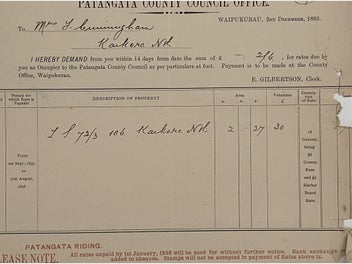 PATANGATA COUNTY COUNCIL OFFICE.
WAIPUKURAU, 2nd December, 1895.
To Mrs F. Cunningham
Kaikora Nth
I HEREBY DEMAND from you within 14 days from date the sum of £ — 2/6, for rates due by
you as Occupier to the Patangata County Council as per particulars at foot. Payment is to be made at the County
Office, Waipukurau.
E. GILBERTSON, Clerk.
Period for which Rate is Payable
DESCRIPTION OF PROPERTY
Area.
Valuation £
Description of Rate
72/3 106 Kaikora Nth 2 27 30
General, being
and
Harbor Board Rate.
PATANGATA RIDING.
PLEASE NOTE.
All rates unpaid by 1st January, 1896 will be sued for without further notice. Bank exchange
added to cheques. Stamps will not be accepted in payment of rates above is.